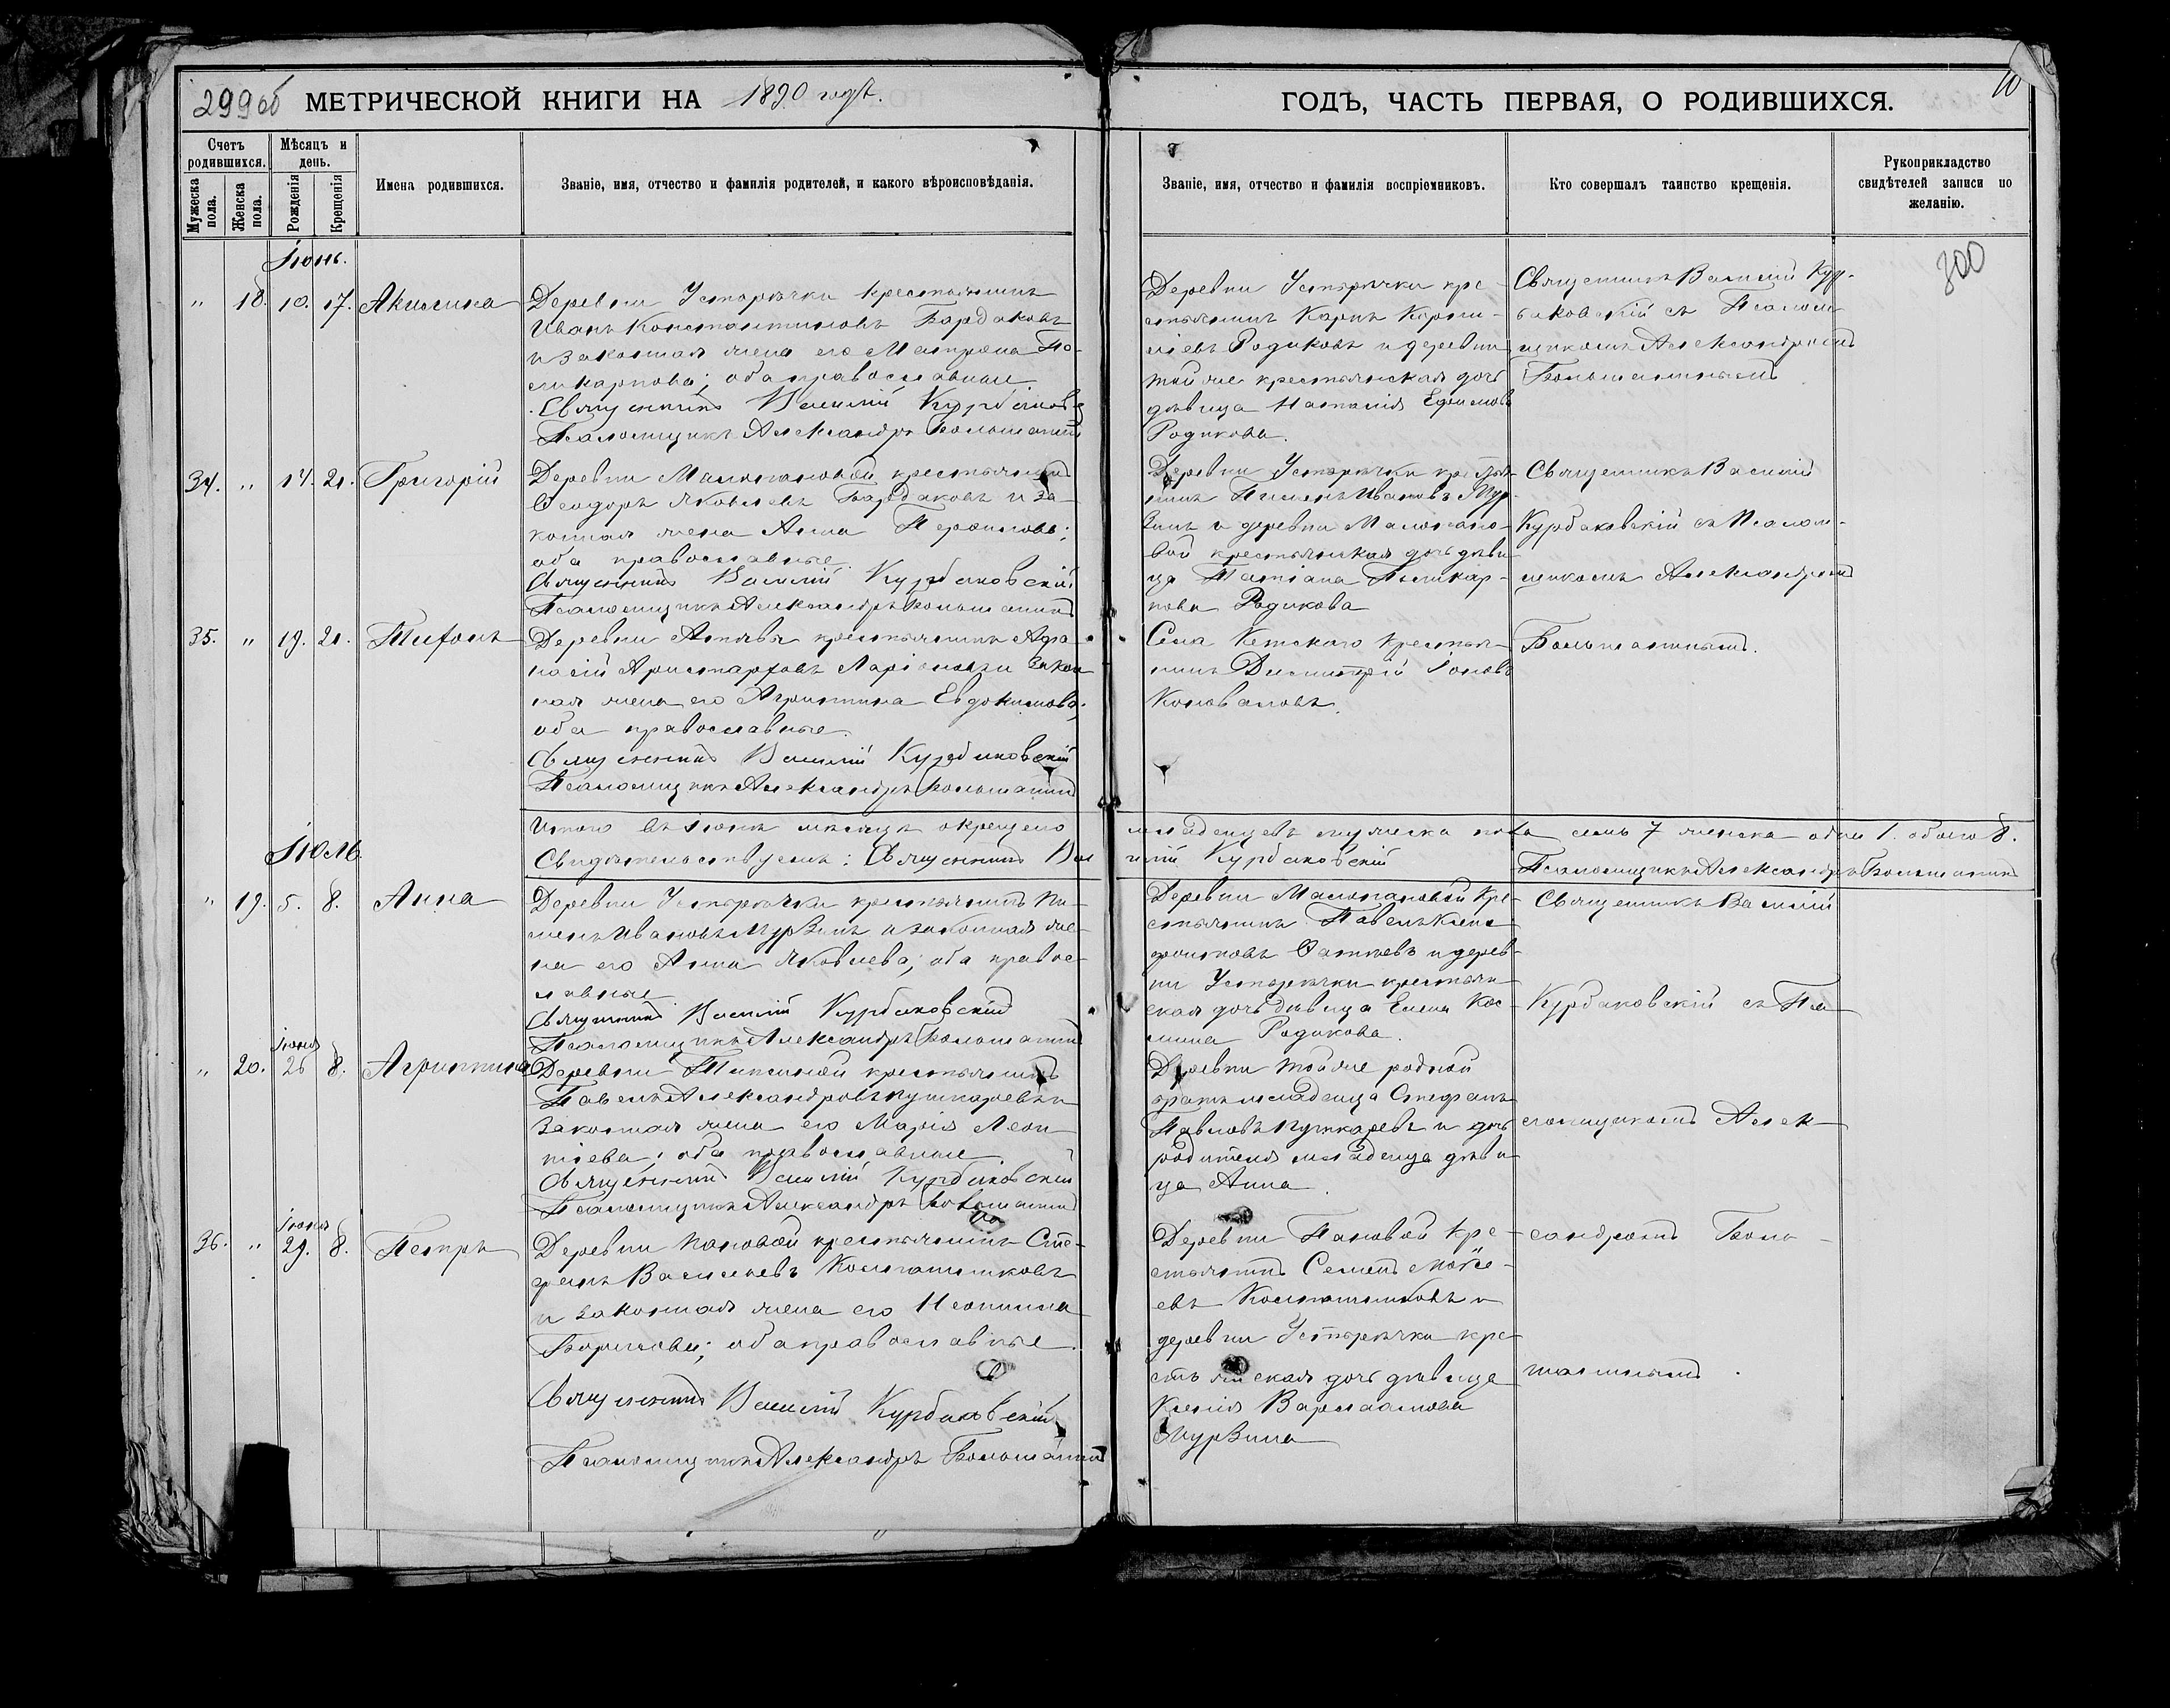 299об МЕТРИЧЕСКОЙ КНИГИ НА 1890 годъ.
ГОДЪ, ЧАСТЬ ПЕРВАЯ, О РОДИВШИХСЯ.
10
Счетъ родившихся.
Мѣсяцъ и день.
Мужеска пола.
Женска пола.
Рожденія
Крещенія
Имена родившихся.
Званіе, имя, отчество и фамилія родителей, и какого вѣроисповѣданія.
Званіе, имя, отчество и фамилія воспріемниковъ.
Кто совершалъ таинство крещенія.
Рукоприкладство свидѣтелей записи по желанію.
300
Іюнь.
" 18. 10. 17. Акилина
Деревни Усторѣчки крестьянинъ
Иванъ Константиновъ Бардаковъ
и законная жена его Матрона По-
ликарпова; оба православные.
Священникъ Василій Курбаковскій
Псаломщикъ Александръ Большанинъ
Деревни Усторѣчки кре-
стьянинъ Карпъ Корни-
ліевъ Родиковъ и деревни
той же крестьянская дочь
дѣвица Наталія Ефимова
Родикова.
Священникъ Василій Кур-
баковскій съ Псалом-
щикомъ Александромъ
Большанинымъ
34. " 14. 21. Григорій
Деревни Малопановой крестьянинъ
Ѳеодоръ Яковлевъ Бардаковъ и за-
конная жена Анна
оба православные.
Священникъ Василій Курбаковскій
Псаломщикъ Александръ Большанинъ
Деревни Усторѣчки крестья-
нинъ Пименъ Ивановъ Мур-
зинъ и деревни Малопано-
вой крестьянская дочь дѣви-
ца Татіана Поликар-
пова Родикова
Священникъ Василій
Курбаковскій съ Псалом-
щикомъ Александромъ
Большанинымъ.
35. " 19. 21. Тихонъ
Деревни крестьянинъ Афа-
насій Аристарховъ Ларіоновъ и закон
ная жена его Агриппина Евдокимова;
оба православные.
Священникъ Василій Курбаковскій
Псаломщикъ Александръ Большанинъ
Села Кетскаго крестья-
нинъ Димитрій Іоновъ
Коноваловъ.
Итого въ Іюнѣ мѣсяцѣ окрещено младенцевъ мужеска пола семь 7 женска одна 1. обоего 8.
Свидѣтельствуемъ: Священникъ Василій Курбаковскій
Псаломщикъ Александръ Большанинъ
Іюль.
" 19. 5. 8. Анна
Деревни Усторѣчки крестьянинъ Пи-
менъ Ивановъ Мурзинъ и законная же-
на его Анна Яковлева; оба правос-
лавные
Священникъ Василій Курбаковскій
Псаломщикъ Александръ Большанинъ
Деревни Малопановой кре-
стьянинъ Павелъ Ксено-
фонтовъ и дерев-
ни Усторѣчки крестьян
ская дочь дѣвица Елена Кос-
мина Родикова.
Священникъ Василій
Курбаковскій съ Пса-
ломщикомъ Алек-
сандромъ Боль-
шанинымъ.
Іюня
" 20. 26 8. Агриппина
Деревни крестьянинъ
Павелъ Александровъ Пушкаревъ и
законная жена его Марія Леон-
тіева; оба православные
Священникъ Василій Курбаковскій
Псаломщикъ Александръ Большанинъ
Деревни той же родной
братъ младенца Стефанъ
Павловъ Пушкаревъ и дочь
родителя младенца дѣви-
ца Анна.
Іюня
36. " 29. 8. Петръ
Деревни Пановой крестьянинъ Сте-
фанъ Васильевъ Колпашниковъ
и законная жена его Неонила
Борисова; оба православные.
Священникъ Василій Курбаковскій
Псаломщикъ Александръ Большанинъ
Деревни Пановой кре-
стьянинъ Семенъ Моѵсе-
евъ Колпашниковъ и
деревни Усторѣчки кре-
стьянская дочь дѣвица
Ксенія Варлаамова
Мурзина